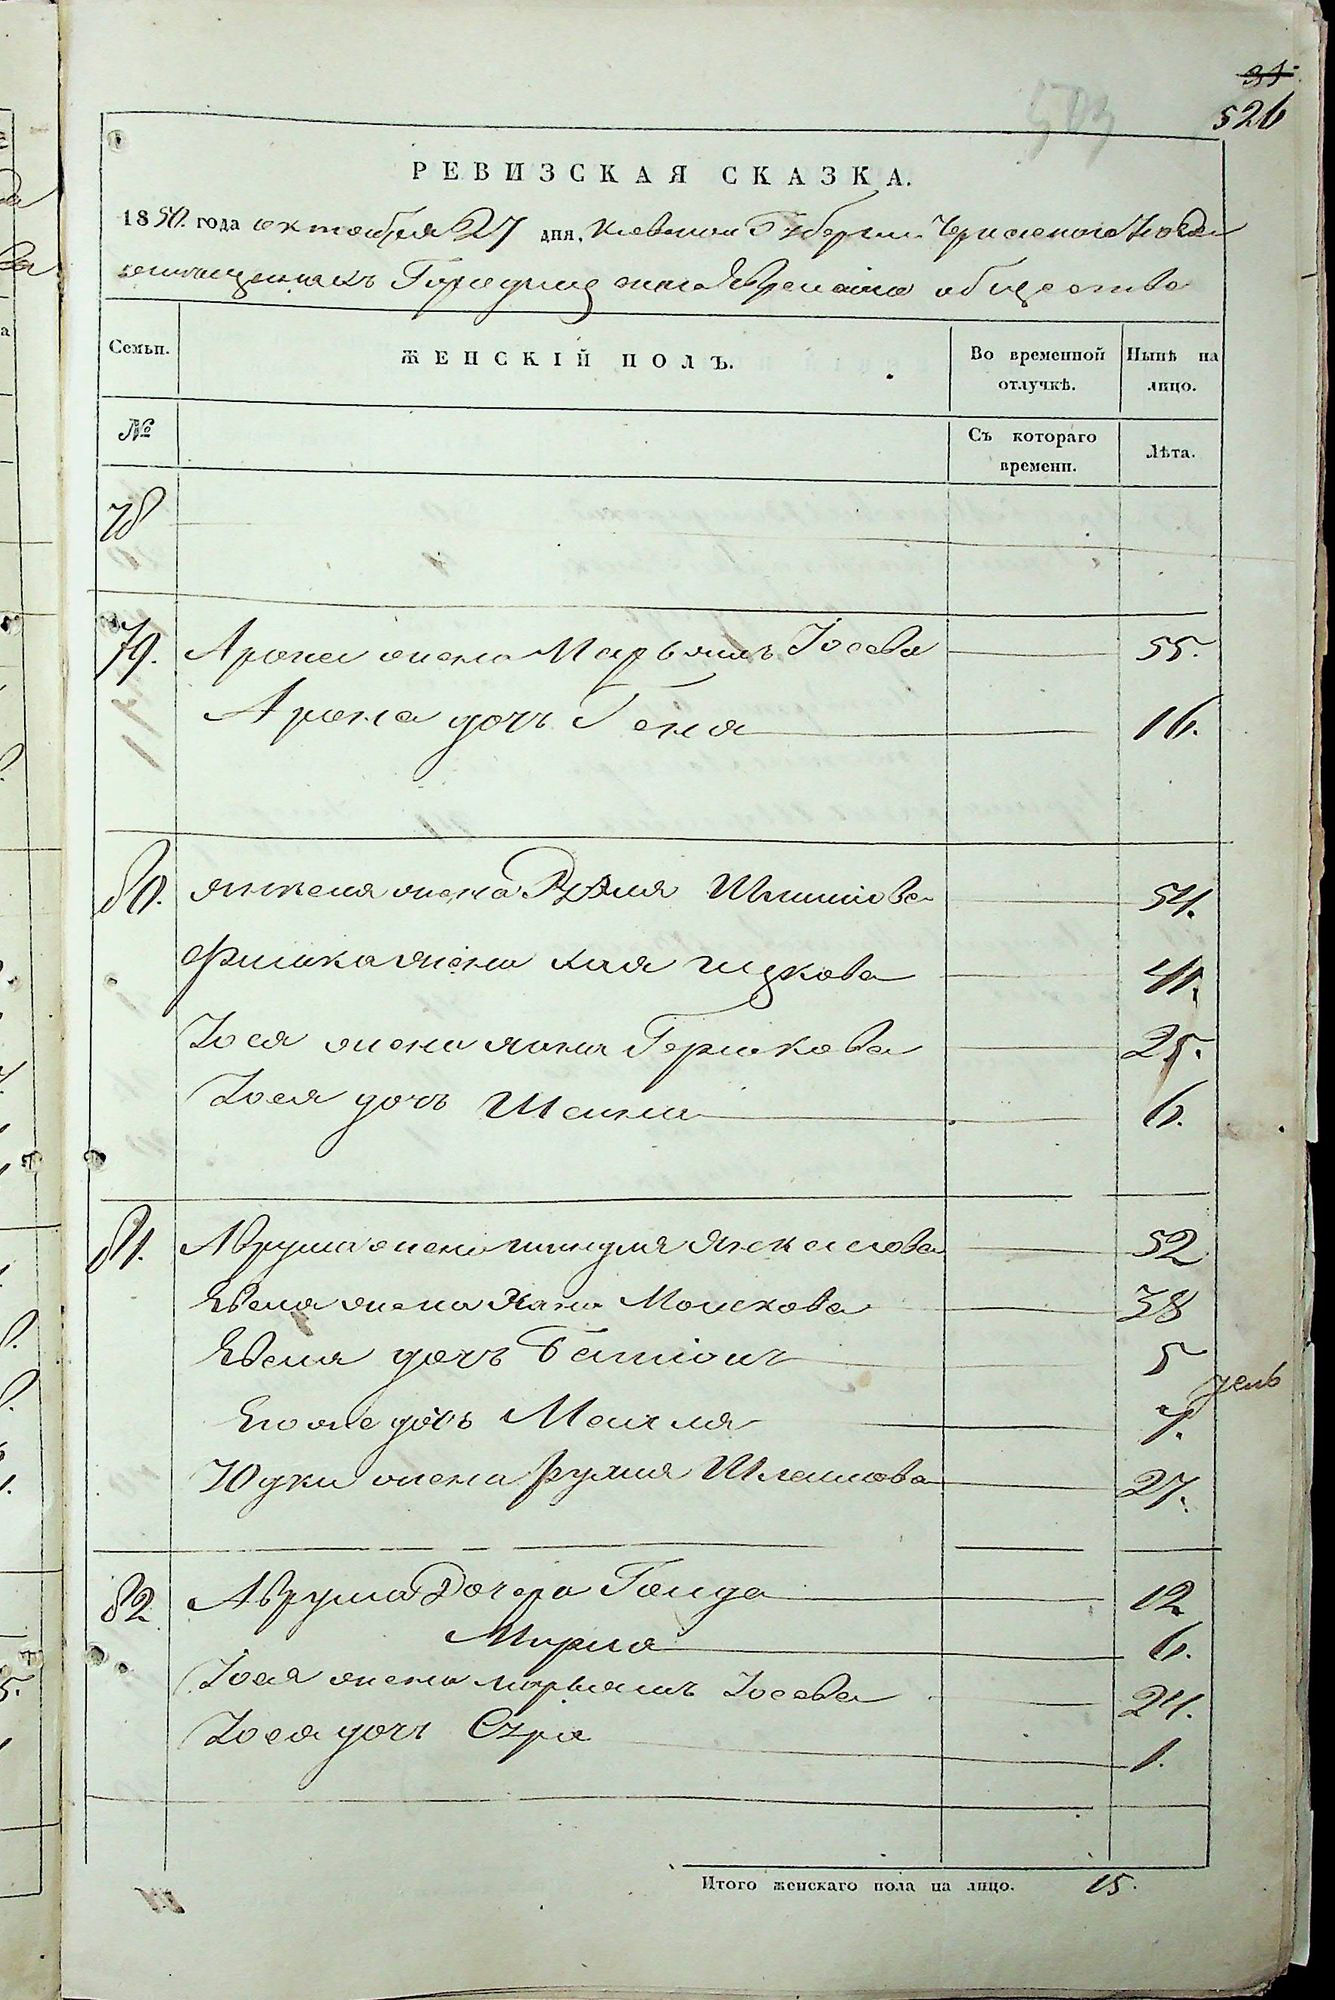 31.
526
503
РЕВИЗСКАЯ СКАЗКА.
1850. года октября 27 дня, Киевской Губернии Черкаского Уезда
о мещанахъ Городищенского Еврейского общества
Семьи.
ЖЕНСКІЙ ПОЛЪ.
Во временной отлучкѣ.
Нынѣ на лицо.
№
Съ котораго времени.
Лѣта.
78
79. Арона жена Марьямъ Іосева 55.
Арона дочь Геня 16.
80. Янкеля жена Шлиомова 54.
Фишка жена Хая Ицкова 41.
Іося жена Гершкова 25.
Іося дочь Шейна 6.
81. Аврума жена Янкелева 52
жена Хана Мошкова 38
дочь 5
Его же дочь 7. недель
Юдки жена Рухля Шлеимова 27.
82 Аврума Дочери Голда 12
Мирля 6.
Іося жена Марьямъ Іосева 24.
Іося дочь Сура 1.
Итого женскаго пола на лицо. 15.